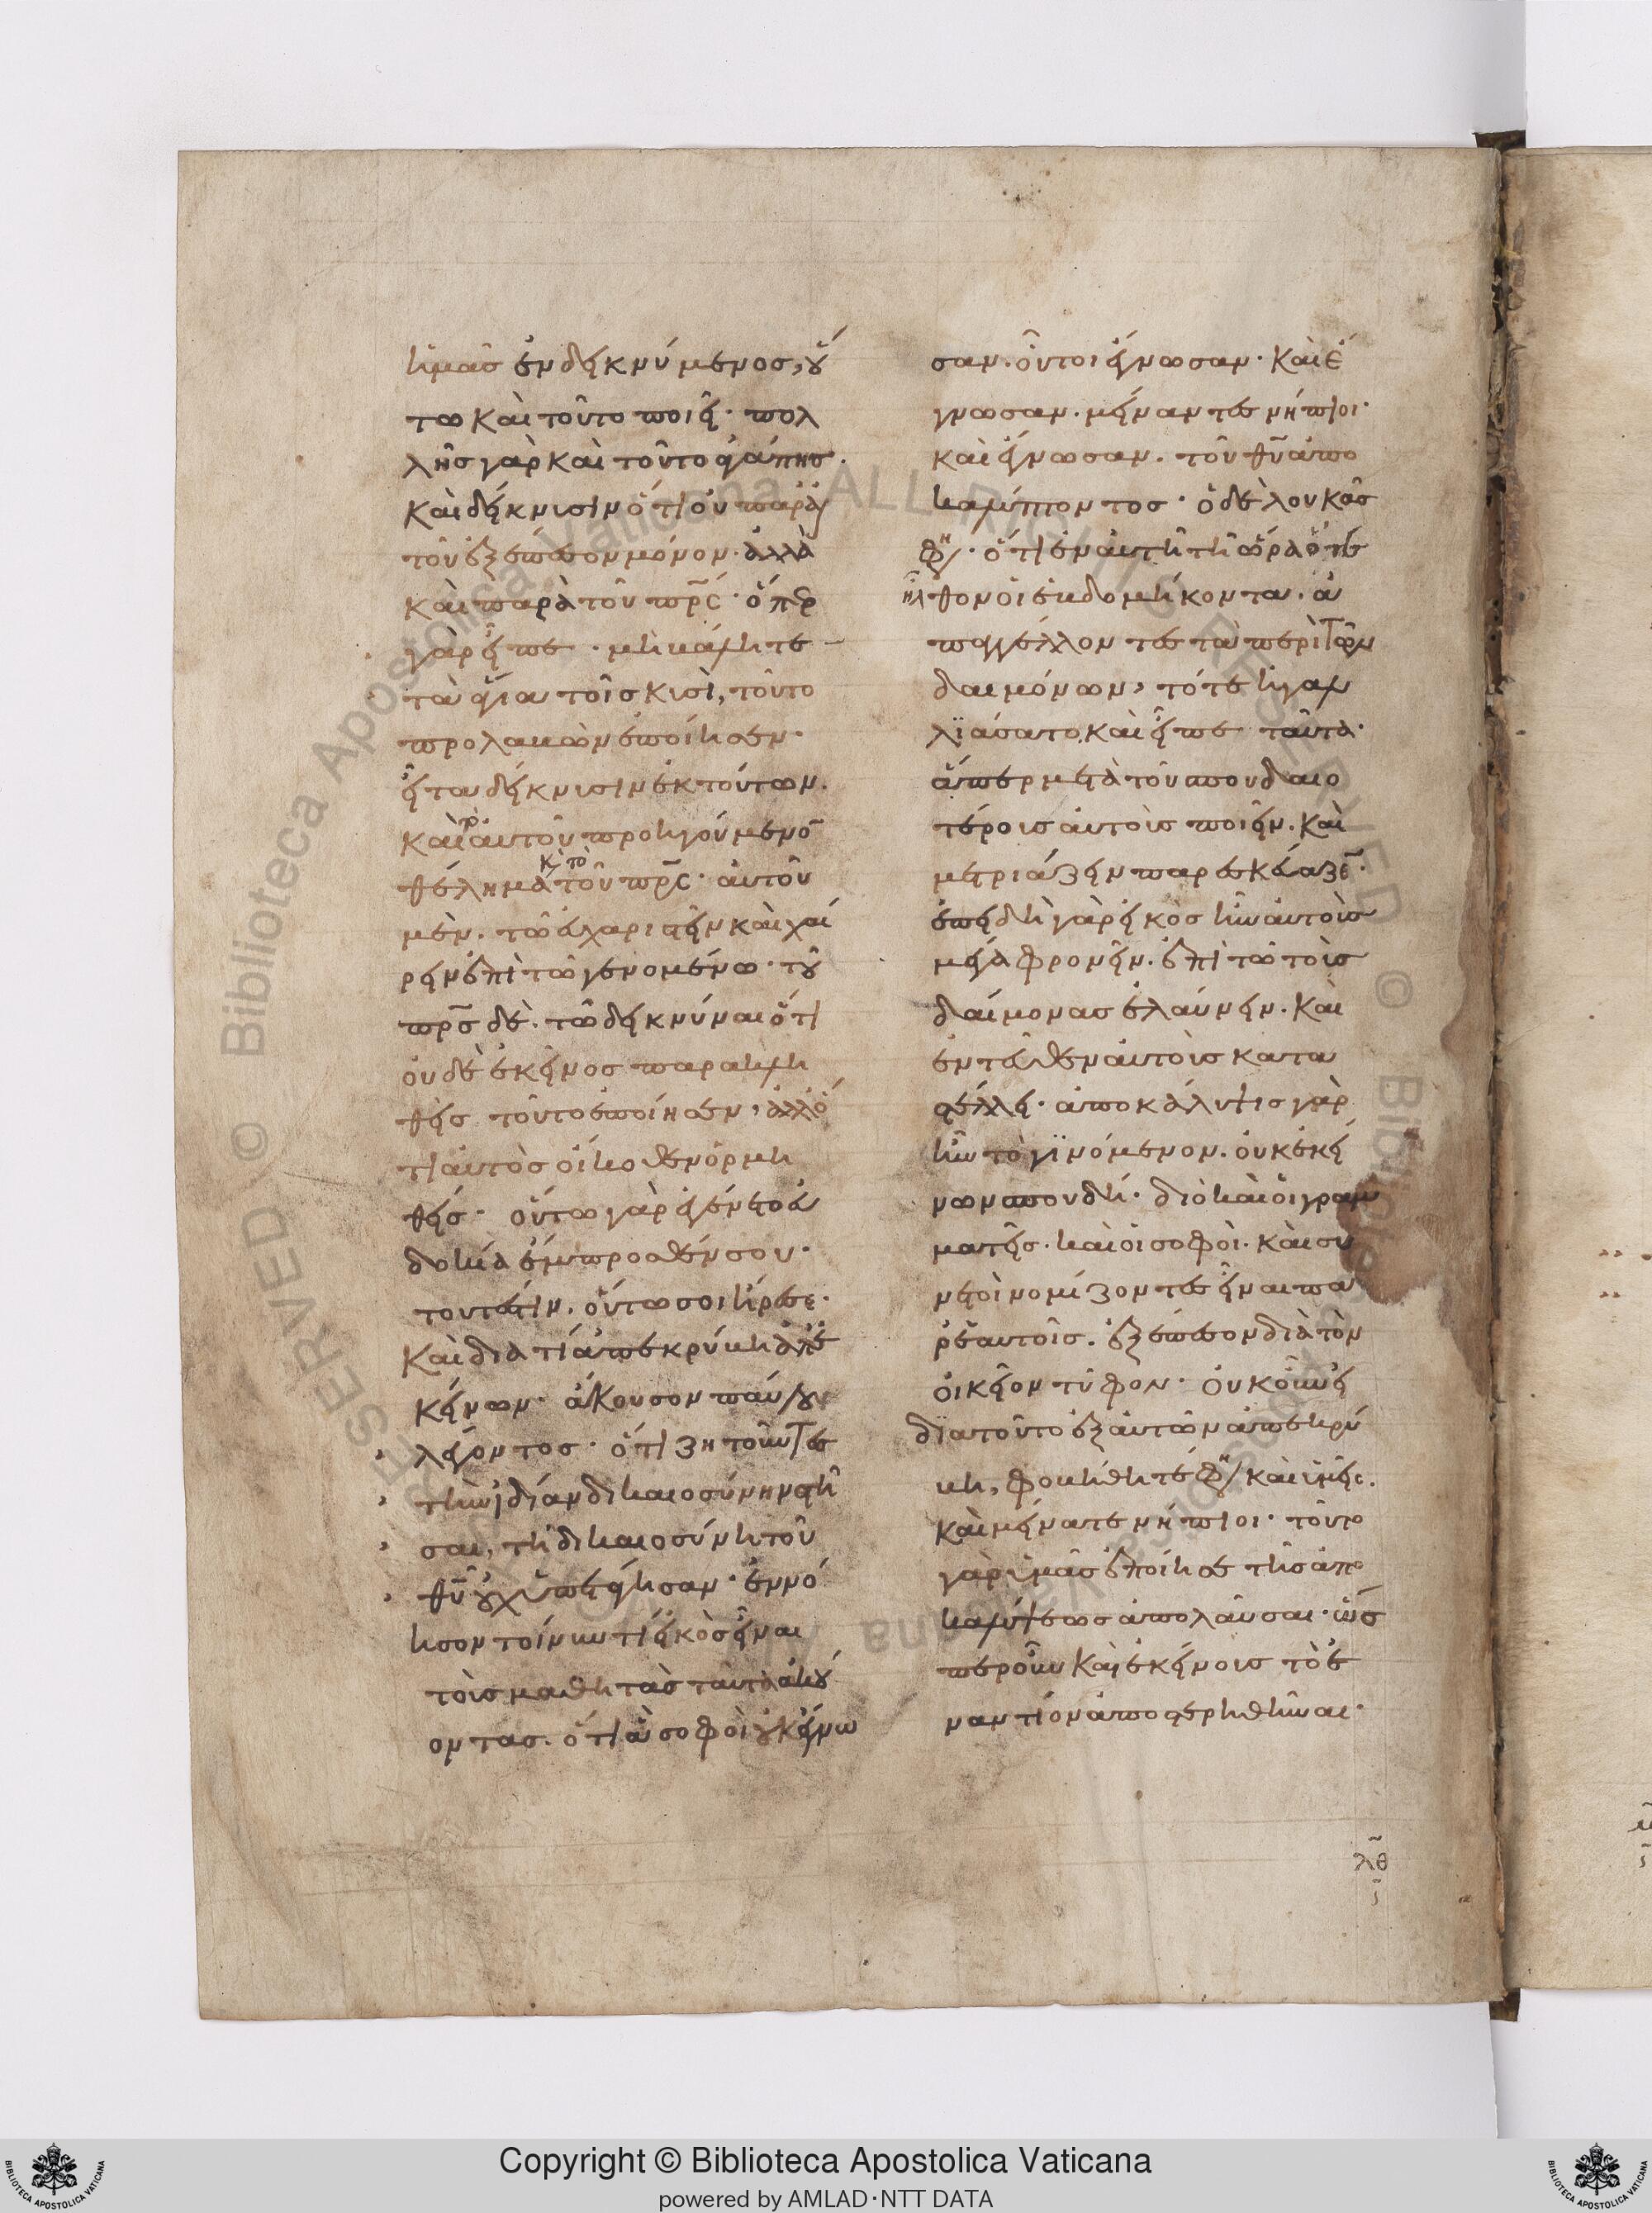 ἡμᾶς ἐνδεικνύμενος, οὕ
τω καὶ τοῦτο ποιεῖ· πολ
λῆς γὰρ καὶ τοῦτο ἀγάπης·
καὶ δείκνυσιν ὅτι οὐ παρ᾽ αὐ
τοῦ ἐξέπεσον μόνον· ἀλλὰ
καὶ παρὰ τοῦ πρ̅ς· ὅπερ
γὰρ εἶπε· μὴ βάλητε
τὰ ἅγια τοῖς κυσὶ, τοῦτο
προλαβὼν ἐποίησεν·
εἶτα δείκνυσιν ἐκ τούτων·
καὶ τὸ αὐτοῦ προηγούμενον
θέλημα κ(αὶ) τὸ τοῦ πρ̅ς· αὐτοῦ
μὲν· τῶ εὐχαριστεῖν καὶ χαί
ρειν ἐπὶ τῶ γενομένω· τοῦ
πρ̅ς δὲ· τῶ δεικνύναι ὅτι
οὐδὲ ἐκεῖνος παρακλη
θεὶς τοῦτο ἐποίησεν, ἀλλ᾽ ὅ
τι αὐτὸς οἴκοθεν ὁρμη
θείς· οὕτω γὰρ ἐγένετο εὐ
δοκία ἔμπροσθέν σου·
τουτέστιν, οὕτω σοι ἤρεσε·
καὶ διατί ἀπεκρύβη ἀπ᾽ ἐ
κείνων· ἄκουσον παύλου
λέγοντος· ὅτι ζητοῦντες
τὴν ἰδίαν δικαιοσύνην στῆ
σαι, τῆ δικαιοσύνη τοῦ
θ̅υ οὐχ ὑπετάγησαν· ἐννό
ησον τοίνυν τί εἰκὸς εἶναι
τοὺς μαθητὰς ταῦτα ἀκού
οντας· ὅτι ἃ σοφοὶ οὐκ ἔγνω
σαν· οὗτοι ἔγνωσαν· καὶ ἔ
γνωσαν· μείναντες νήπιοι·
καὶ ἔγνωσαν· τοῦ θ̅υ ἀπο
καλύπτοντος· ὁ δὲ λουκᾶς
φη(σίν)· ὅτι ἐν αὐτῆ τῆ ὥρα ὅτε
ἦλθον οἱ ἑβδομήκοντα· ἀ
παγγέλλοντες τὰ περὶ τῶν
δαιμόνων, τότε ἠγαλ
λϊάσατο, καὶ εἶπε ταῦτα·
ἅπερ μετὰ τοῦ σπουδαιο
τέροις αὐτοὺς ποιεῖν· καὶ
μετριάζειν παρεσκεύαζεν·
ἐπειδὴ γὰρ εἰκὸς ἦν αὐτοὺς
μέγα φρονεῖν· ἐπὶ τῶ τοὺς
δαίμονας ἐλαύνειν· καὶ
ἐντεῦθεν αὐτοὺς κατα
στέλλει· ἀποκάλυψις γὰρ
ἦν τὸ γϊνόμενον· οὐκ ἐκεί
νων σπουδή· διὸ καὶ οἱ γραμ
ματεῖς· καὶ οἱ σοφοὶ· καὶ συ
νετοὶ νομίζοντες εἶναι πα
ρ᾽ ἑαυτοῖς· ἐξέπεσον διὰ τὸν
οἰκεῖον τῦφον· οὐκοῦν εἰ
δϊὰ τοῦτο ἐξ αὐτῶν ἀπεκρύ
βη, φοβήθητέ φη(σι) καὶ ὑμεῖς·
καὶ μείνατε νήπιοι· τοῦτο
γὰρ ὑμᾶς ἐποίησε τῆς ἀπο
καλύψεως ἀπολαῦσαι· ὥς
περ οὖν καὶ ἐκείνους τὸ ἐ
ναντίον ἀποστερηθῆναι·
λθ
Copyright © Biblioteca Apostolica Vaticana
powered by AMLAD·NTT DATA